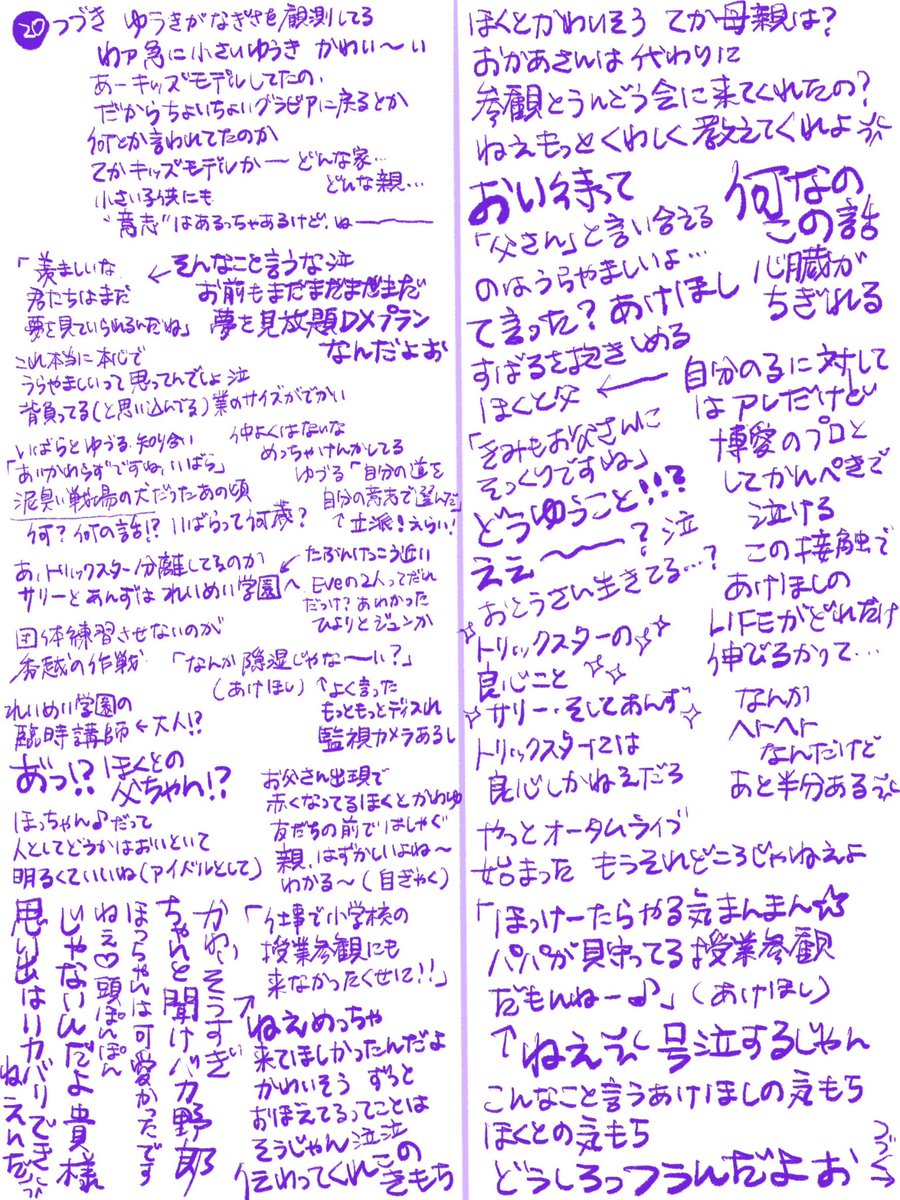 20 つづき ゆうきがなぎさを観測してる
わァ急に小さいゆうき かわい〜い
あーキッズモデルしてたの、
だからちょいちょいグラビアに戻るとか
何とか言われてたのか
てかキッズモデルかー どんな家…
どんな親…
小さい子供にも
"意志"はあるっちゃあるけど、ね———
「羨ましいな
君たちはまだ
夢を見ていられるんだね」
← そんなこと言うな泣
お前もまだまだまだまだ
夢を見放題DXプラン
なんだよお
これ本当に本心で
うらやましいって思ってんでしょ泣
背負ってる(と思い込んでる)業のサイズがでかい
いばらとゆうる、知り合い
「あいかわらずですね、いばら」
泥臭い戦場の犬だったあの頃
何?何の話!? いばらって何歳?
仲よくはないな
めっちゃけんかしてる
ゆづる「自分の道を
自分の意志で選んだ」
↑立派!えらい!
あ、トリックスター分離してるのか
サリーとあんずは れいめい学園へ
← たぶんけっこう近い
Eveの2人ってだれ
だっけ?あわかった
ひよりとジュンか
団体練習させないのが
秀越の作戦
「なんか陰湿じゃな〜い?」
(あけほし)
↑よく言った
もっともっとディスれ
監視カメラあるし
れいめい学園の
臨時講師 ← 大人!?
おっ!? ほくとの
父ちゃん!?
ほっちゃん♪だって
人としてどうかはおいといて
明るくていいね(アイドルとして)
お父さん出現で
赤くなってるほくとかわゆ
友だちの前ではしゃぐ
親、はずかしいよね〜
わかる〜(自ぎゃく)
「仕事で小学校の
授業参観にも
来なかったくせに!!」
↑
ねえめっちゃ
来てほしかったんだよ
かわいそう ずっと
おぼえてるってことは
そうじゃん泣泣
伝わってくれこの
きもち
かわいそうすぎい
ちゃんと聞けバカ野郎
ほっちゃんは可愛かったです
ねえ♡頭ぽんぽん
じゃないんだよ貴様
思い出はリカバリできねえんだ
ほくとかわいそう てか母親は?
おかあさんは代わりに
参観とうんどう会に来てくれたの?
ねえもっとくわしく教えてくれよ
おい待って
何なの
この話
心臓が
ちぎれる
「父さん」と言い合える
のはうらやましいよ…
て言った?あけほし
すばるを抱きしめる
ほくと父
← 自分の子に対して
はアレだけど
博愛のプロと
してかんぺきで
泣ける
この接触で
あけほしの
LIFEがどれだけ
伸びるかって…
「きみもお父さんに
そっくりですね」
どうゆうこと!!?
ええ〜〜?泣
おとうさん生きてる…?
トリックスターの
良心こと
サリー・そしてあんず
トリックスターには
良心しかねえだろ
なんか
ヘトヘト
なんだけど
あと半分ある
やっとオータムライブ
始まった もうそれどころじゃねえよ
「ほっけーたらやる気まんまん☆
パパが見守ってる授業参観
だもんねー♪」(あけほし)
↑ねえ 号泣するじゃん
こんなこと言うあけほしの気もち
ほくとの気もち
どうしろっつうんだよお
つづく→